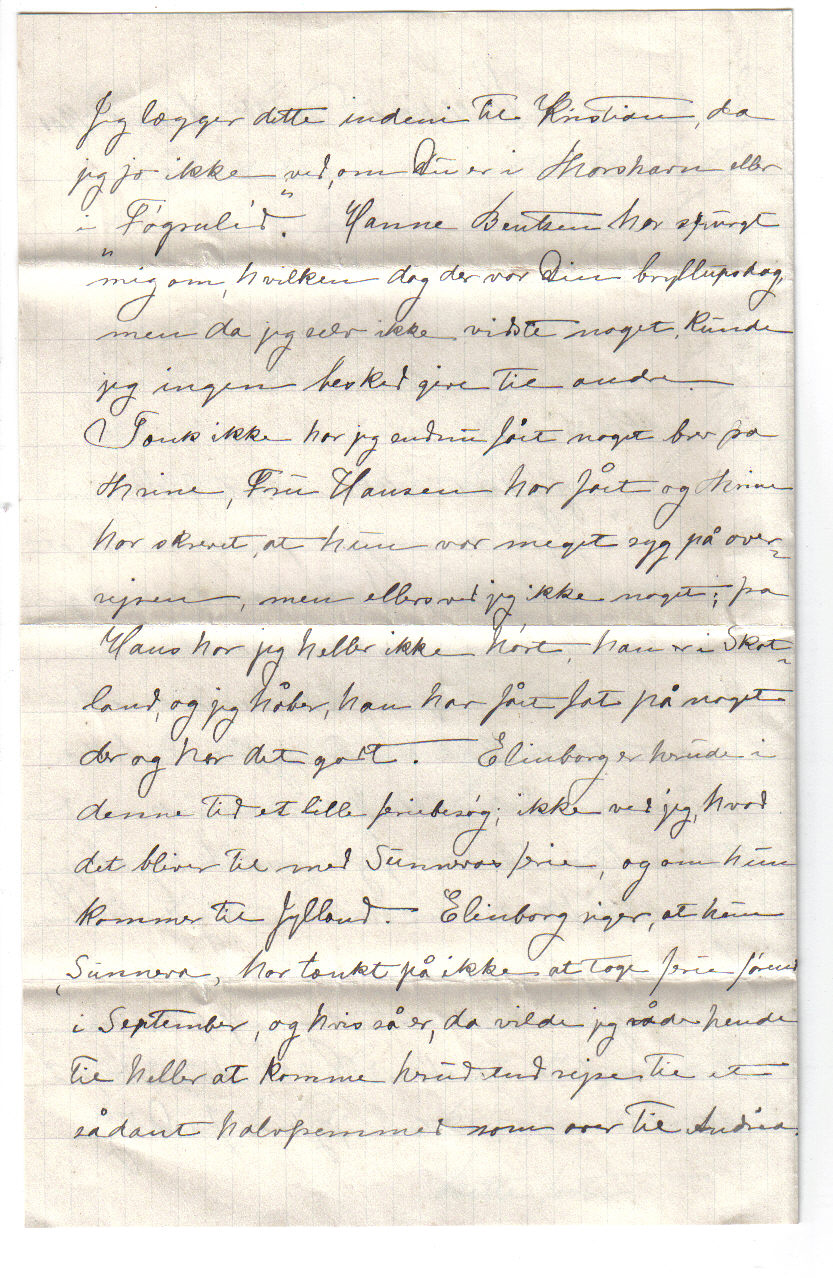 Jeg lægger dette indeni til Kristian, da
jeg jo ikke ved, om Du er i Thorshavn eller
i "Fógrulíd". Hanne Bentsen har spurgt
mig om, hvilken dag der var Din bryllupsdag,
men da jeg selv ikke vidste noget, kunde
jeg ingen besked give til andre.
Tænk ikke har jeg endnu fået noget brev fra
Thrine, Fru Hansen har fået og Thrine
har skrevet, at hun var meget syg på over-
rejsen, men ellers ved jeg ikke noget; fra
Hans har jeg heller ikke hørt, han er i Skot-
land, og jeg håber, han har fået fat på noget
der og har det godt. Elinborg er herude i
denne tid et lille feriebesøg; ikke ved jeg, hvad
det bliver til med Sunnevas ferie, og om hun
kommer til Jylland. Elinborg siger, at hun
Sunneva, har tænkt på ikke at tage ferie førend
i September, og hvis så er, da vilde jeg råde hende
til heller at komme herud end rejse til et
sådant halvfremmed som over til Andrea.